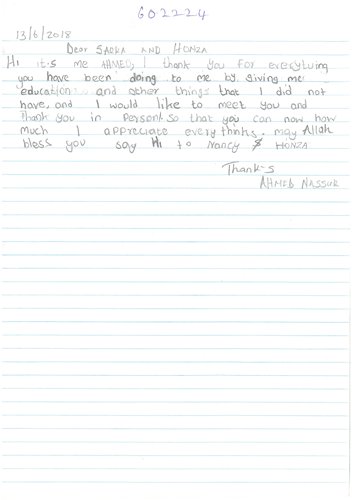 602224
13/6/2018
Dear SAQKA AND HONZA
Hi it-s me AHMED, I thank you for everytuing
you have been doing to me by giving me
education and other things that I did not
have, and I would like to meet you and
thank you in Person so that you can now how
much I appreciate every thinks. may Allah
bless you say Hi to Nancy & HONZA
Thank-s
AHMED NASSUR